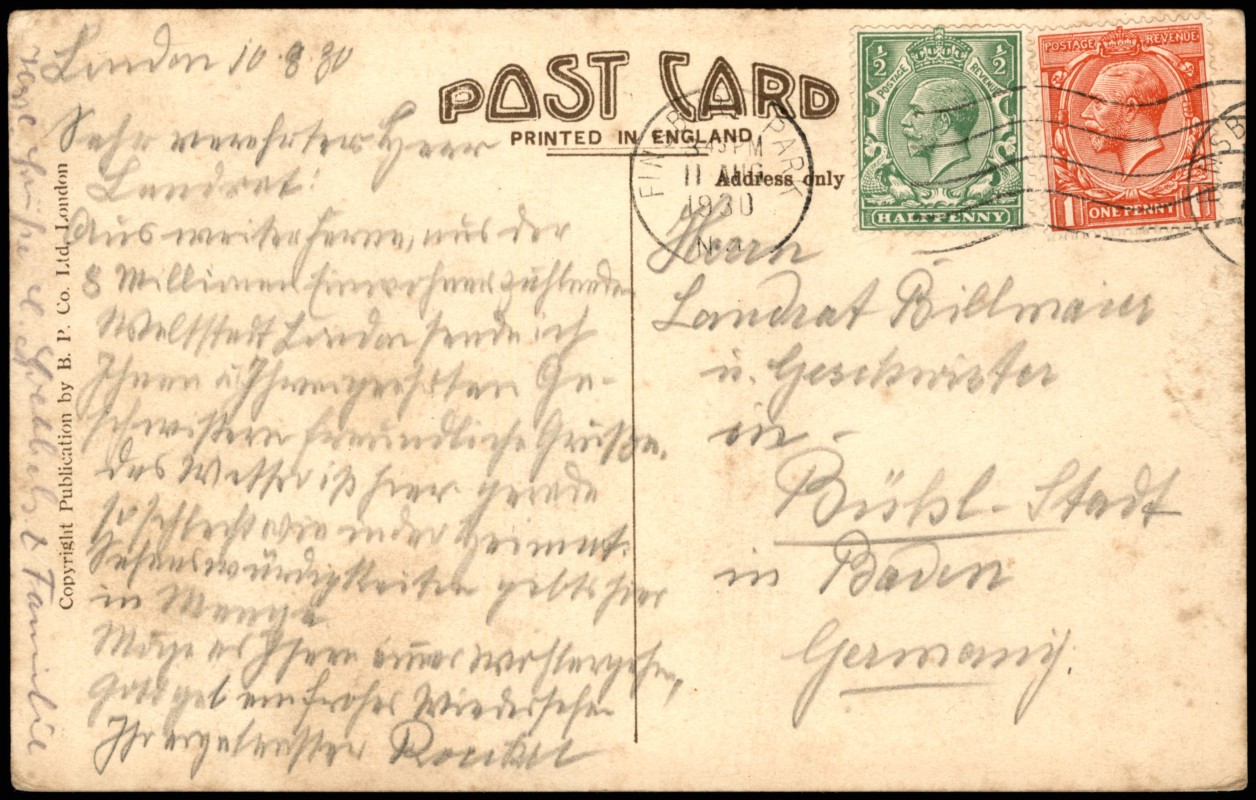 London 10.8.30
Sehr verehrter Herr
Landrat!
Aus weiter Ferne, aus der
8 Millionen Einwohner zählenden
Weltstadt London sende ich
Ihnen u. Ihren Ge-
schwistern freundliche Grüße.
Das Wetter ist hier gerade
so schlecht wie in der Heimat.
Sehenswürdigkeiten gibts hier
in Menge
Möge es Ihnen immer wohlergehen,
Gott geb ein frohes Wiedersehen
Ihr ergebenster
Familie
Copyright Publication by B. P. Co. Ltd. London
POST CARD
PRINTED IN ENGLAND
Address only
FINSBURY PARK
3 45 PM
11 AUG
1930
N.4
½ ½
POSTAGE REVENUE
HALFPENNY
POSTAGE REVENUE
1 ONE PENNY 1
FINSB
Herrn
Landrat Billmaier
u. Geschwister
in -
Bühl-Stadt
in Baden
Germany.